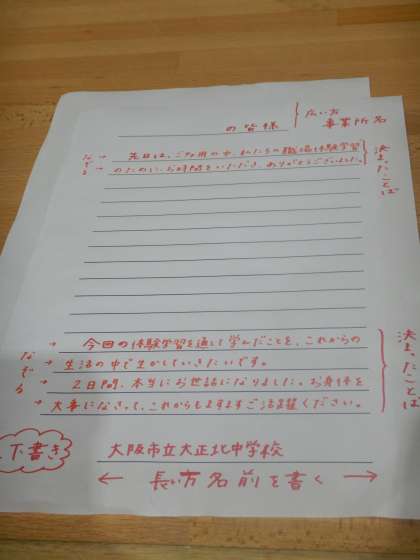 の皆様
広い方
事業所名
先日は、ご多用の中、私たちの職場体験学習
のために、お時間をいただき、ありがとうございました。
なぞる
決まったことば
今回の体験学習を通して学んだことを、これからの
生活の中で生かしていきたいです。
2日間、本当にお世話になりました。お身体を
大事になさって、これからもますますご活躍ください。
なぞる
決まったことば
下書き
大阪市立大正北中学校
← 長い方 名前を書く →